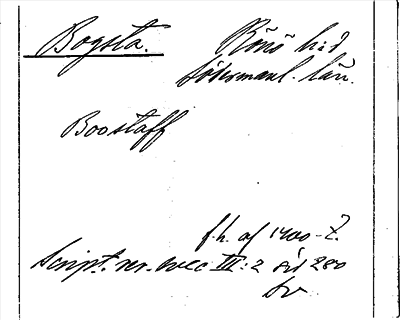 Bogsta. Rönö h:d
Södermanl. län.
Boostaff
f.h. af 1400-t.
Script. rer. svec III:2 sid 280